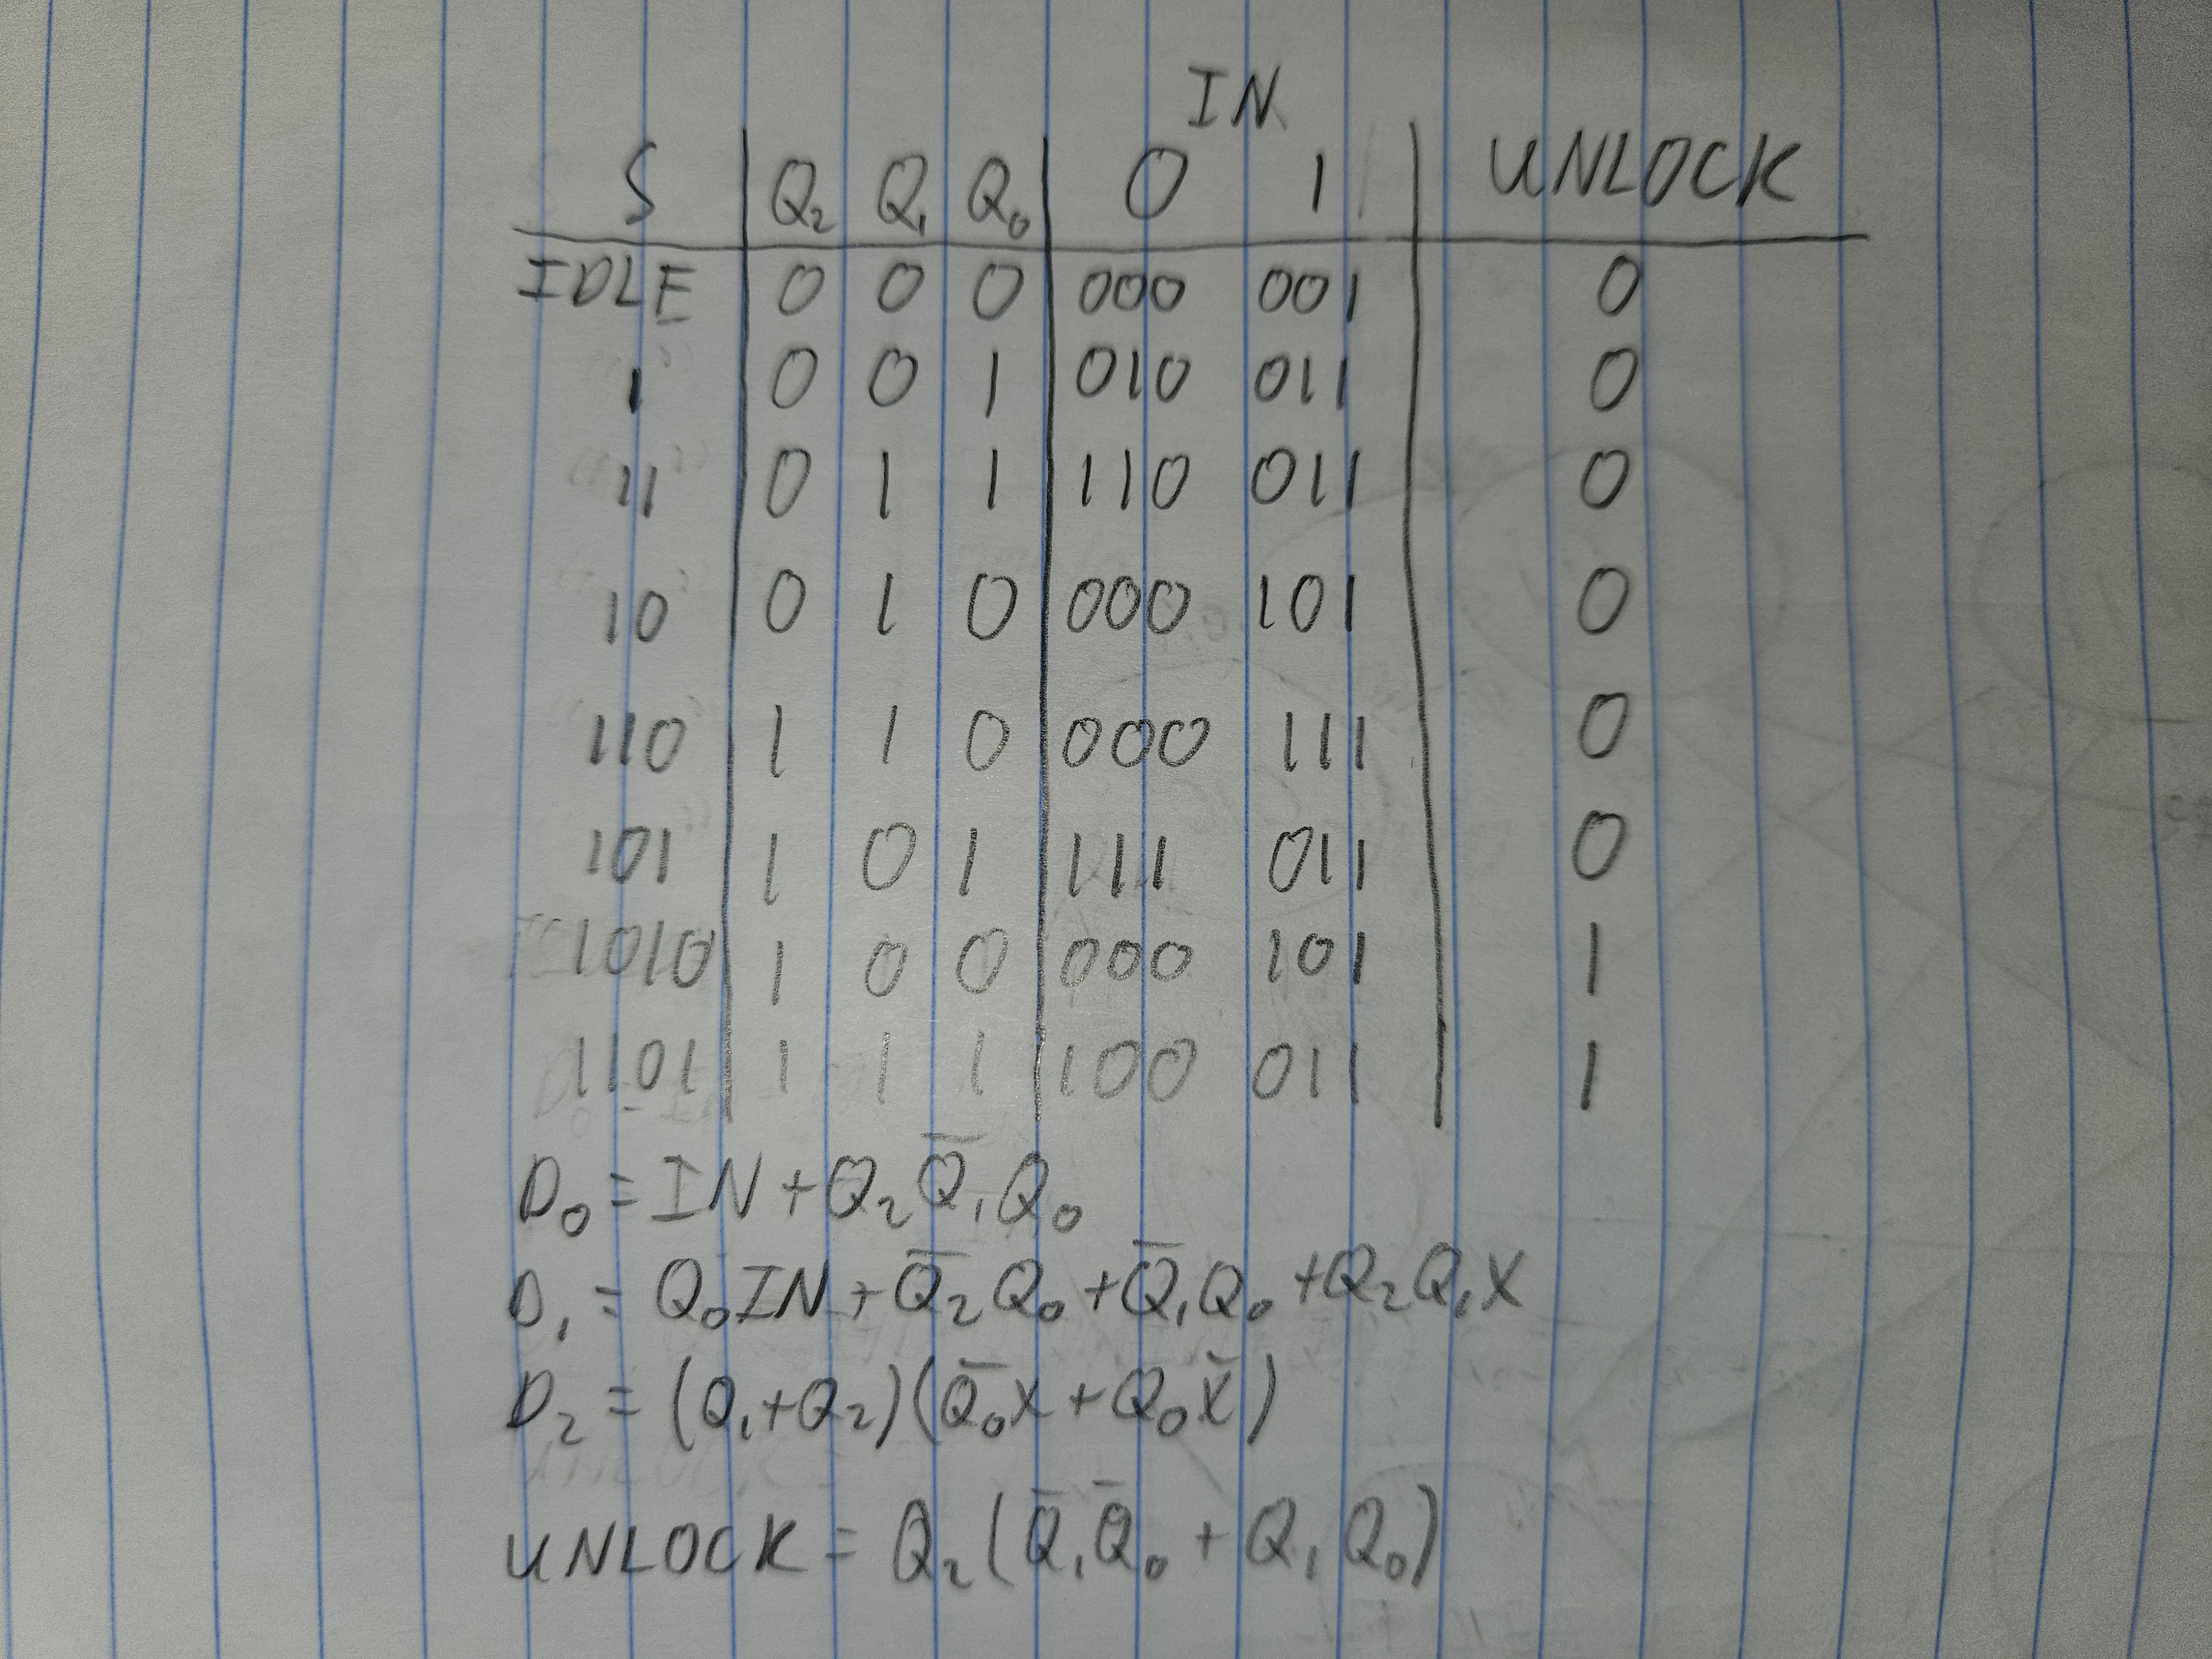 IN
S Q₂ Q₁ Q₀ 0 1 UNLOCK
IDLE 0 0 0 000 001 0
1 0 0 1 010 011 0
11 0 1 1 110 011 0
10 0 1 0 000 101 0
110 1 1 0 000 111 0
101 1 0 1 111 011 0
1010 1 0 0 000 101 1
1101 1 1 1 100 011 1
D₀ = IN + Q₂Q̅₁Q₀
D₁ = Q₀IN + Q̅₂Q₀ + Q̅₁Q₀ + Q₂Q₁X
D₂ = (Q₁+Q₂)(Q̅₀X + Q₀X̅)
UNLOCK = Q₂(Q̅₁Q̅₀ + Q₁Q₀)